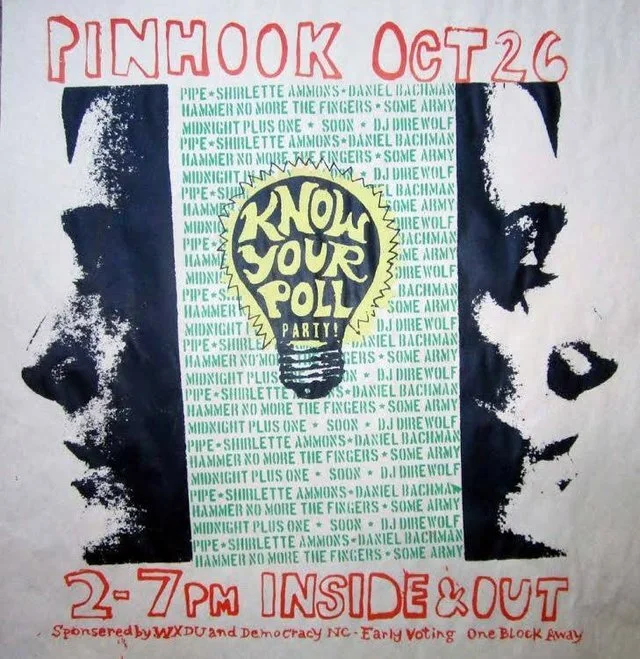 PINHOOK OCT 26
PIPE★SHIRLETTE AMMONS★DANIEL BACHMAN
HAMMER NO MORE THE FINGERS ★ SOME ARMY
MIDNIGHT PLUS ONE ★ SOON ★ DJ DIREWOLF
PIPE★SHIRLETTE AMMONS★DANIEL BACHMAN
HAMMER NO MORE GERS ★ SOME ARMY
MIDNIGHT DJ DIREWOLF
PIPE★S BACHMAN
HAMME SOME ARMY
MIDN DIREWOLF
PIPE★ ACHMAN
HAMM ARMY
MIDN DIREWOLF
PIPE★S BACHMAN
HAMMER SOME ARMY
MIDNIGHT DJ DIREWOLF
PIPE★SHIRL ANIEL BACHMAN
HAMMER NO MOR GERS ★ SOME ARMY
MIDNIGHT PLUS DJ DIREWOLF
PIPE★SHIRLETTE S★DANIEL BACHMAN
HAMMER NO MORE THE FINGERS ★ SOME ARMY
MIDNIGHT PLUS ONE ★ SOON ★ DJ DIREWOLF
PIPE★SHIRLETTE AMMONS★DANIEL BACHMAN
HAMMER NO MORE THE FINGERS ★ SOME ARMY
MIDNIGHT PLUS ONE ★ SOON ★ DJ DIREWOLF
PIPE★SHIRLETTE AMMONS★DANIEL BACHMAN
HAMMER NO MORE THE FINGERS ★ SOME ARMY
MIDNIGHT PLUS ONE ★ SOON ★ DJ DIREWOLF
PIPE★SHIRLETTE AMMONS★DANIEL BACHMAN
HAMMER NO MORE THE FINGERS ★ SOME ARMY
KNOW
YOUR
POLL
PARTY!
2-7PM INSIDE & OUT
Sponsered by WXDU and Democracy NC - Early Voting One Block Away